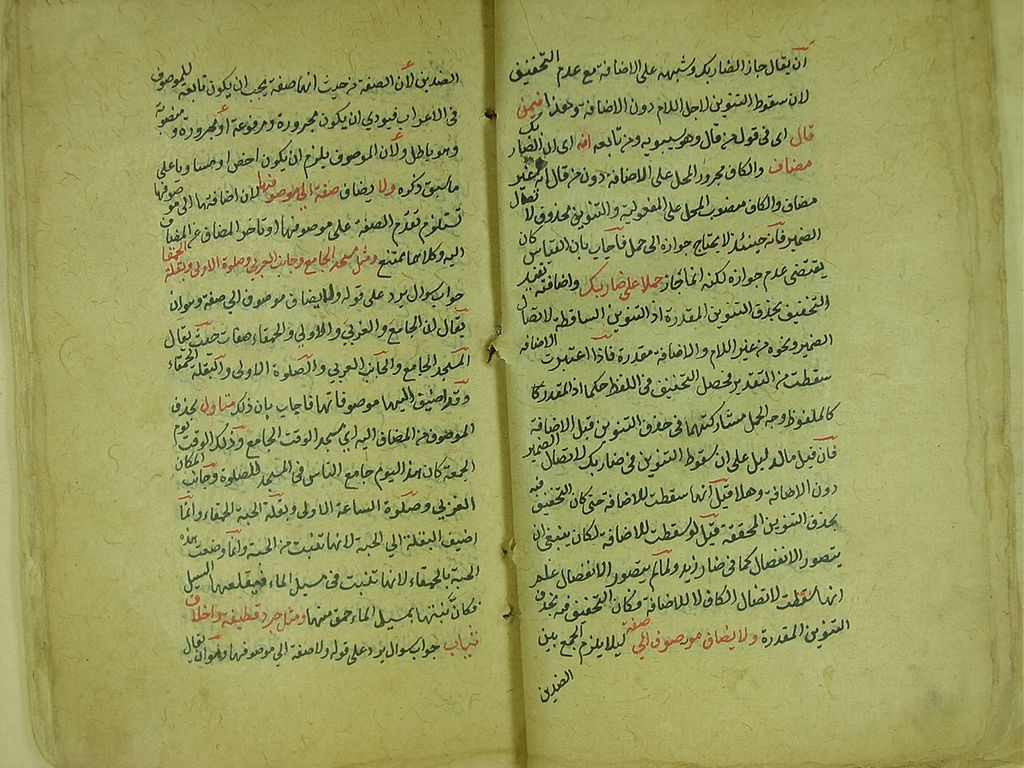 ان يقال جاز الضاربك وشبهه على الاضافة مع عدم التخفيف
لان سقوط التنوين لاجل اللام دون الاضافة وهذا فيمن
قال اى فى قول من قال وهو سيبويه ومن تابعه انه اى ان الضاربك
مضاف والكاف مجرور المحل على الاضافة دون من قال انه غير
مضاف والكاف منصوب المحل على المفعولية والتنوين محذوف لاتصال
الضمير فانه حينئذ لا يحتاج جوازه الى حمل فاجاب بان القياس كان
يقتضى عدم جوازه لكنه انما جاز حملا على ضاربك واضافته تفيد
التخفيف بحذف التنوين المقدرة اذ التنوين الساقطة لاتصال
الضمير ونحوه من غير اللام والاضافة مقدرة فاذا اعتبرت الاضافة
سقطت من التقدير فحصل التخفيف فى اللفظ حكما اذ المقدر كا
كالملفوظ وجه الحمل مشاركتهما فى حذف التنوين قبل الاضافة
فان قيل ما الدليل على ان سقوط التنوين فى ضاربك لاتصال الضمير
دون الاضافة وهلا قيل انها سقطت للاضافة حتى كان التخفيف فيه
بحذف التنوين المحققة قيل لو سقطت للاضافة لكان ينبغى ان
يتصور الانفصال كما فى ضارب زيد ولما لم يتصور الانفصال علم
انها سقطت لاتصال الكاف لا للاضافة فكان التخفيف فيه بحذف
التنوين المقدرة ولا يضاف موصوف الى صفة كيلا يلزم الجمع بين
الضدين
الضدين لان الصفة من حيث انها صفة يجب ان يكون تابعة للموصوف
فى الاعراب فيودى ان يكون مجرورة ومرفوعة او مجرورة ومنصوبة
وهو باطل ولان الموصوف يلزم ان يكون اخص او مساويا على
ما سبق ذكره ولا يضاف صفة الى موصوفها لان اضافتها الى موصوفها
تستلزم تقدم الصفة على موصوفها او تاخر المضاف عن المضاف
اليه وكلاهما ممتنع ومثل مسجد الجامع وجانب الغربى وصلوة الاولى وبقلة الحمقا
جواب سوال يرد على قوله ولا يضاف موصوف الى صفة وهو ان
يقال ان الجامع والغربى والاولى والحمقاء صفات حيث يقال
المسجد الجامع والجانب الغربى والصلوة الاولى والبقلة الحمقاء
وقد اضيف اليها موصوفاتها فاجاب بان ذلك متاول بحذف
الموصوف من المضاف اليه اى مسجد الوقت الجامع وذلك الوقت يوم
الجمعة كان هذا اليوم جامع الناس فى المسجد للصلوة وجانب المكان
الغربى وصلوة الساعة الاولى وبقلة الحبة الحمقاء وانما
اضيف البقلة الى الحبة لانها تنبت من الحبة وانما وصفت هذه
الحبة بالحمقاء لانها تنبت فى مسيل الماء فيقلعها السيل
فكان نبتها بمسيل الماء حمق منها ومثل جرد قطيفة واخلاق
ثياب جواب سوال يرد على قوله ولا صفة الى موصوفها وهو ان يقال